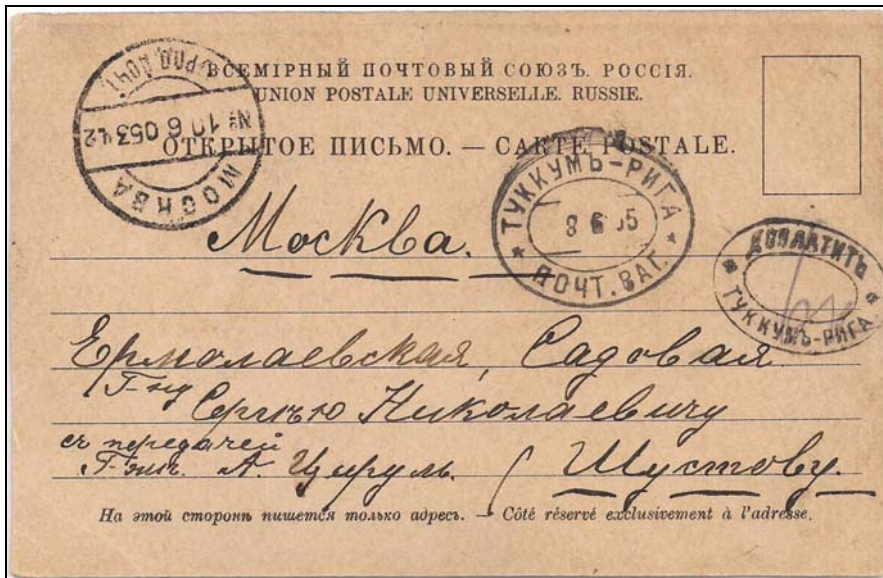 ВСЕМІРНЫЙ ПОЧТОВЫЙ СОЮЗЪ. РОССІЯ.
UNION POSTALE UNIVERSELLE. RUSSIE.
ОТКРЫТОЕ ПИСЬМО. — CARTE POSTALE.
МОСКВА
№ 10 6 05 3 42
ГОРОД. ПОЧТ
ТУККУМЪ-РИГА
8 6 05
ПОЧТ. ВАГ.
ДОПЛАТИТЬ
ТУККУМЪ-РИГА
Москва.
Ермолаевская, Садовая
Г-ну Сергѣю Николаевичу
съ передачей
А. Цируль. Шустову.
На этой сторонѣ пишется только адресъ. — Côté réservé exclusivement à l'adresse.